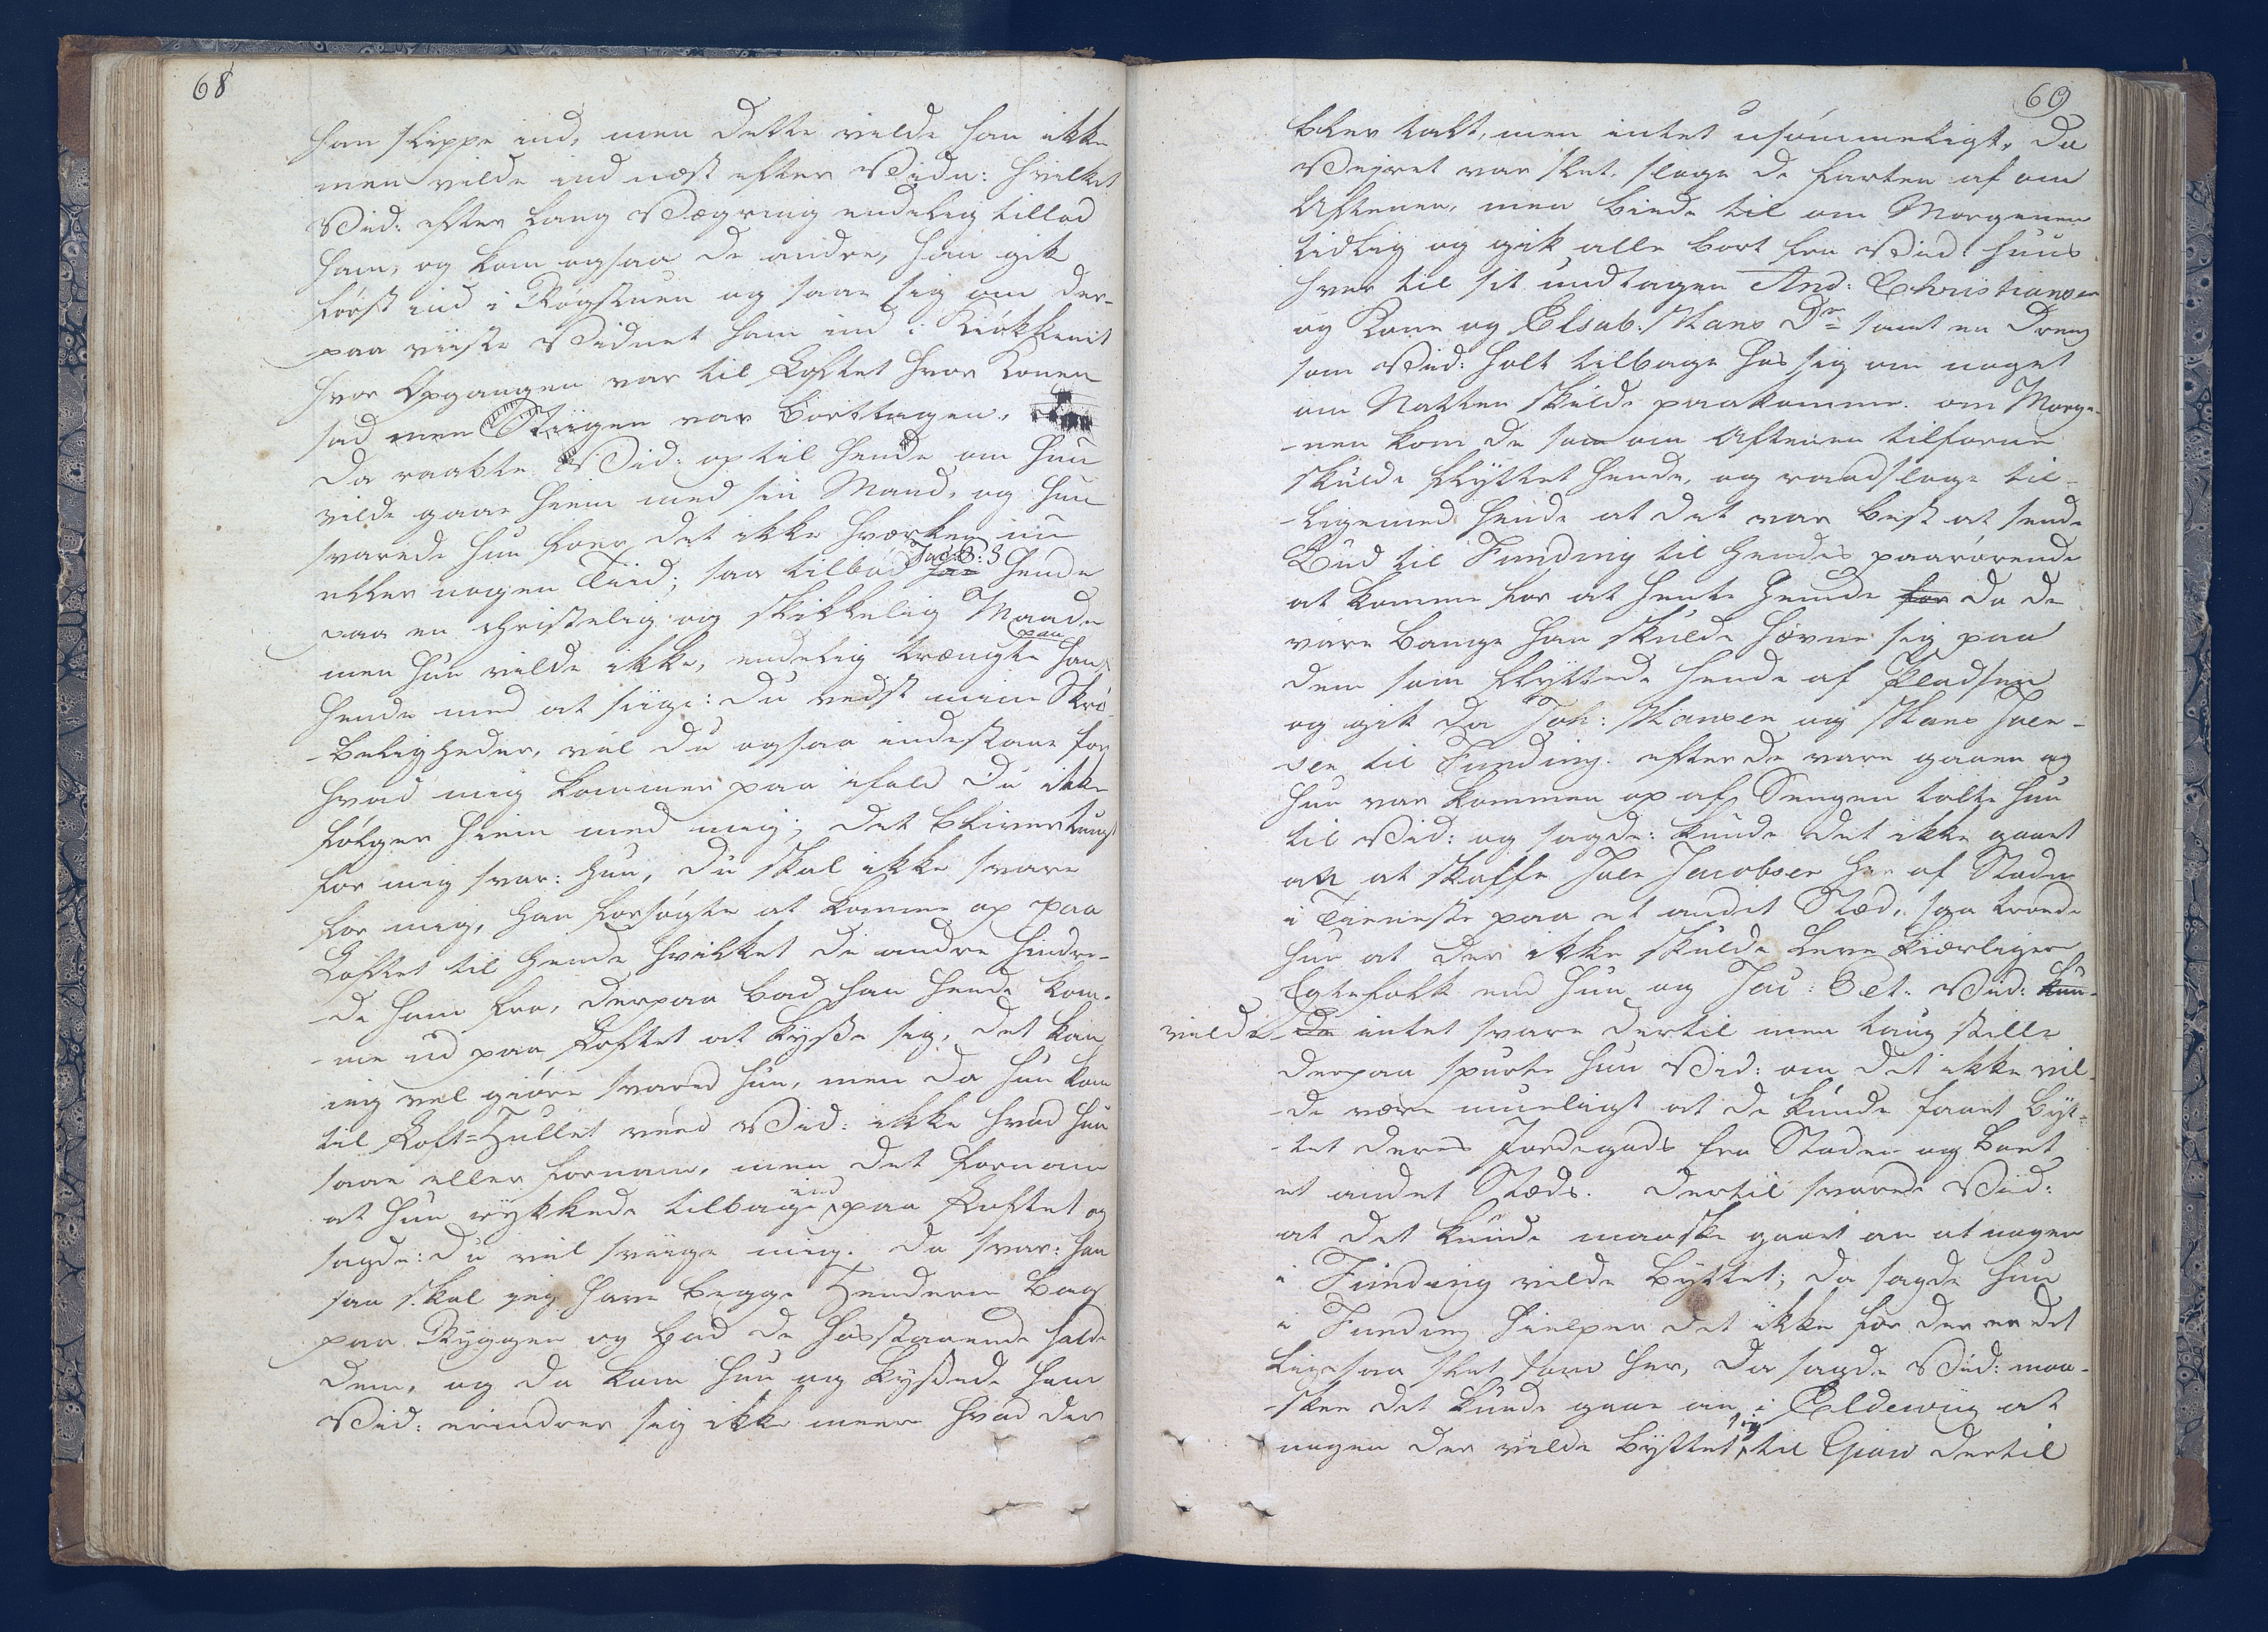 68
han slippe ind, men dette vilde han ikke
men vilde ind næst efter Vidn: hvilket
Vid: efter lang Vægring endelig tillod
ham, og kom ogsaa de andre, han gik
først ind i Rogstuen og saae sig om der-
paa viiste Vidnet ham ind i Kiøkkenet
hvor Opgangen var til Loftet hvor Konen
sad men Stiigen var borttagen.
Da raabte Vid: op til hende om hun
vilde gaae hiem med sin Mand, og hun
svarede hun foer det ikke hverken nu
eller nogen Tiid; saa tilbød Jac: P: hende
paa en christelig og skikkelig Maade
men hun vilde ikke, endelig trængte han paa
hende med at siige: du vedst mine Skrø-
-beligheder, vil du ogsaa indestaae for
hvad mig kommer paa ifald du ikke
følger hiem med mig; det bliver tungt
for mig svar: hun, du skal ikke svare
for mig, han forsøgte at komme op paa
Loftet til hende hvilket de andre hindre-
-de ham fra, derpaa bad han hende kom-
-me ud paa Loftet at kysse sig, det kan
ieg vel giøre svared hun, men da hun kom
til Loft-Hullet veed Vid: ikke hvad hun
saae eller fornam, men det fornam
at hun rykkede tilbage ind paa Loftet og
sagde: du vil sviige mig. da svar: han
saa skal ieg have begge Henderne bag
paa Ryggen og bad de hosstaaende holde
dem, og da kom hun og kyssede ham
Vid: erindrer sig ikke meere hvad der
69
blev talt, men intet usømmeligt. Da
Veiret var slet, sloge de farten af om
Aftenen, men biede til om Morgenen
tidlig og gik alle bort fra Vid: huus
hver til sit undtagen And: Christiansen
og Kone og Elsab: Hans Dr samt en Dreng
som Vid: holt tilbage hos sig om noget
om Natten skulde paakomme. om Morge-
-nen kom de som om Aftenen tilforne
skulde flyttet hende, og raadsloge til-
-ligemed hende at det var best at sende
Bud til Funding til hendes paarørende
at komme for at hente hende for da de
vare bange han skulde hævne sig paa
dem som flyttede hende af Pladsen
og gik da Joh: Hansen og Hans Joen-
sen til Funding. efter de vare gaaen og
hun var kommen op af Sengen talte hun
til Vid: og sagde: kunde det ikke gaaet
an at skaffe Joen Jacobsen her af Staden
i Tieneste paa et andet Stæd, saa troede
hun at der ikke skulde leve kierligere
Egtefolk end hun og Jac: Pet. Vid: kun-
vilde de intet svare dertil men taug stille
derpaa spurte hun Vid: om det ikke vil-
-de være mueligt at de kunde faaet byt-
-tet deres Jordegods fra Staden og boet
et andet Stæds. dertil svarede Vid:
at det kunde maaske gaaet an at nogen
i Funding vilde byttet; da sagde hun
i Funding hielper det ikke for der er det
ligesaa slet som her, da sagde Vid: maa-
-skee det kunde gaae an i Eldewiig at
nogen der vilde byttet sig til Giow dertil